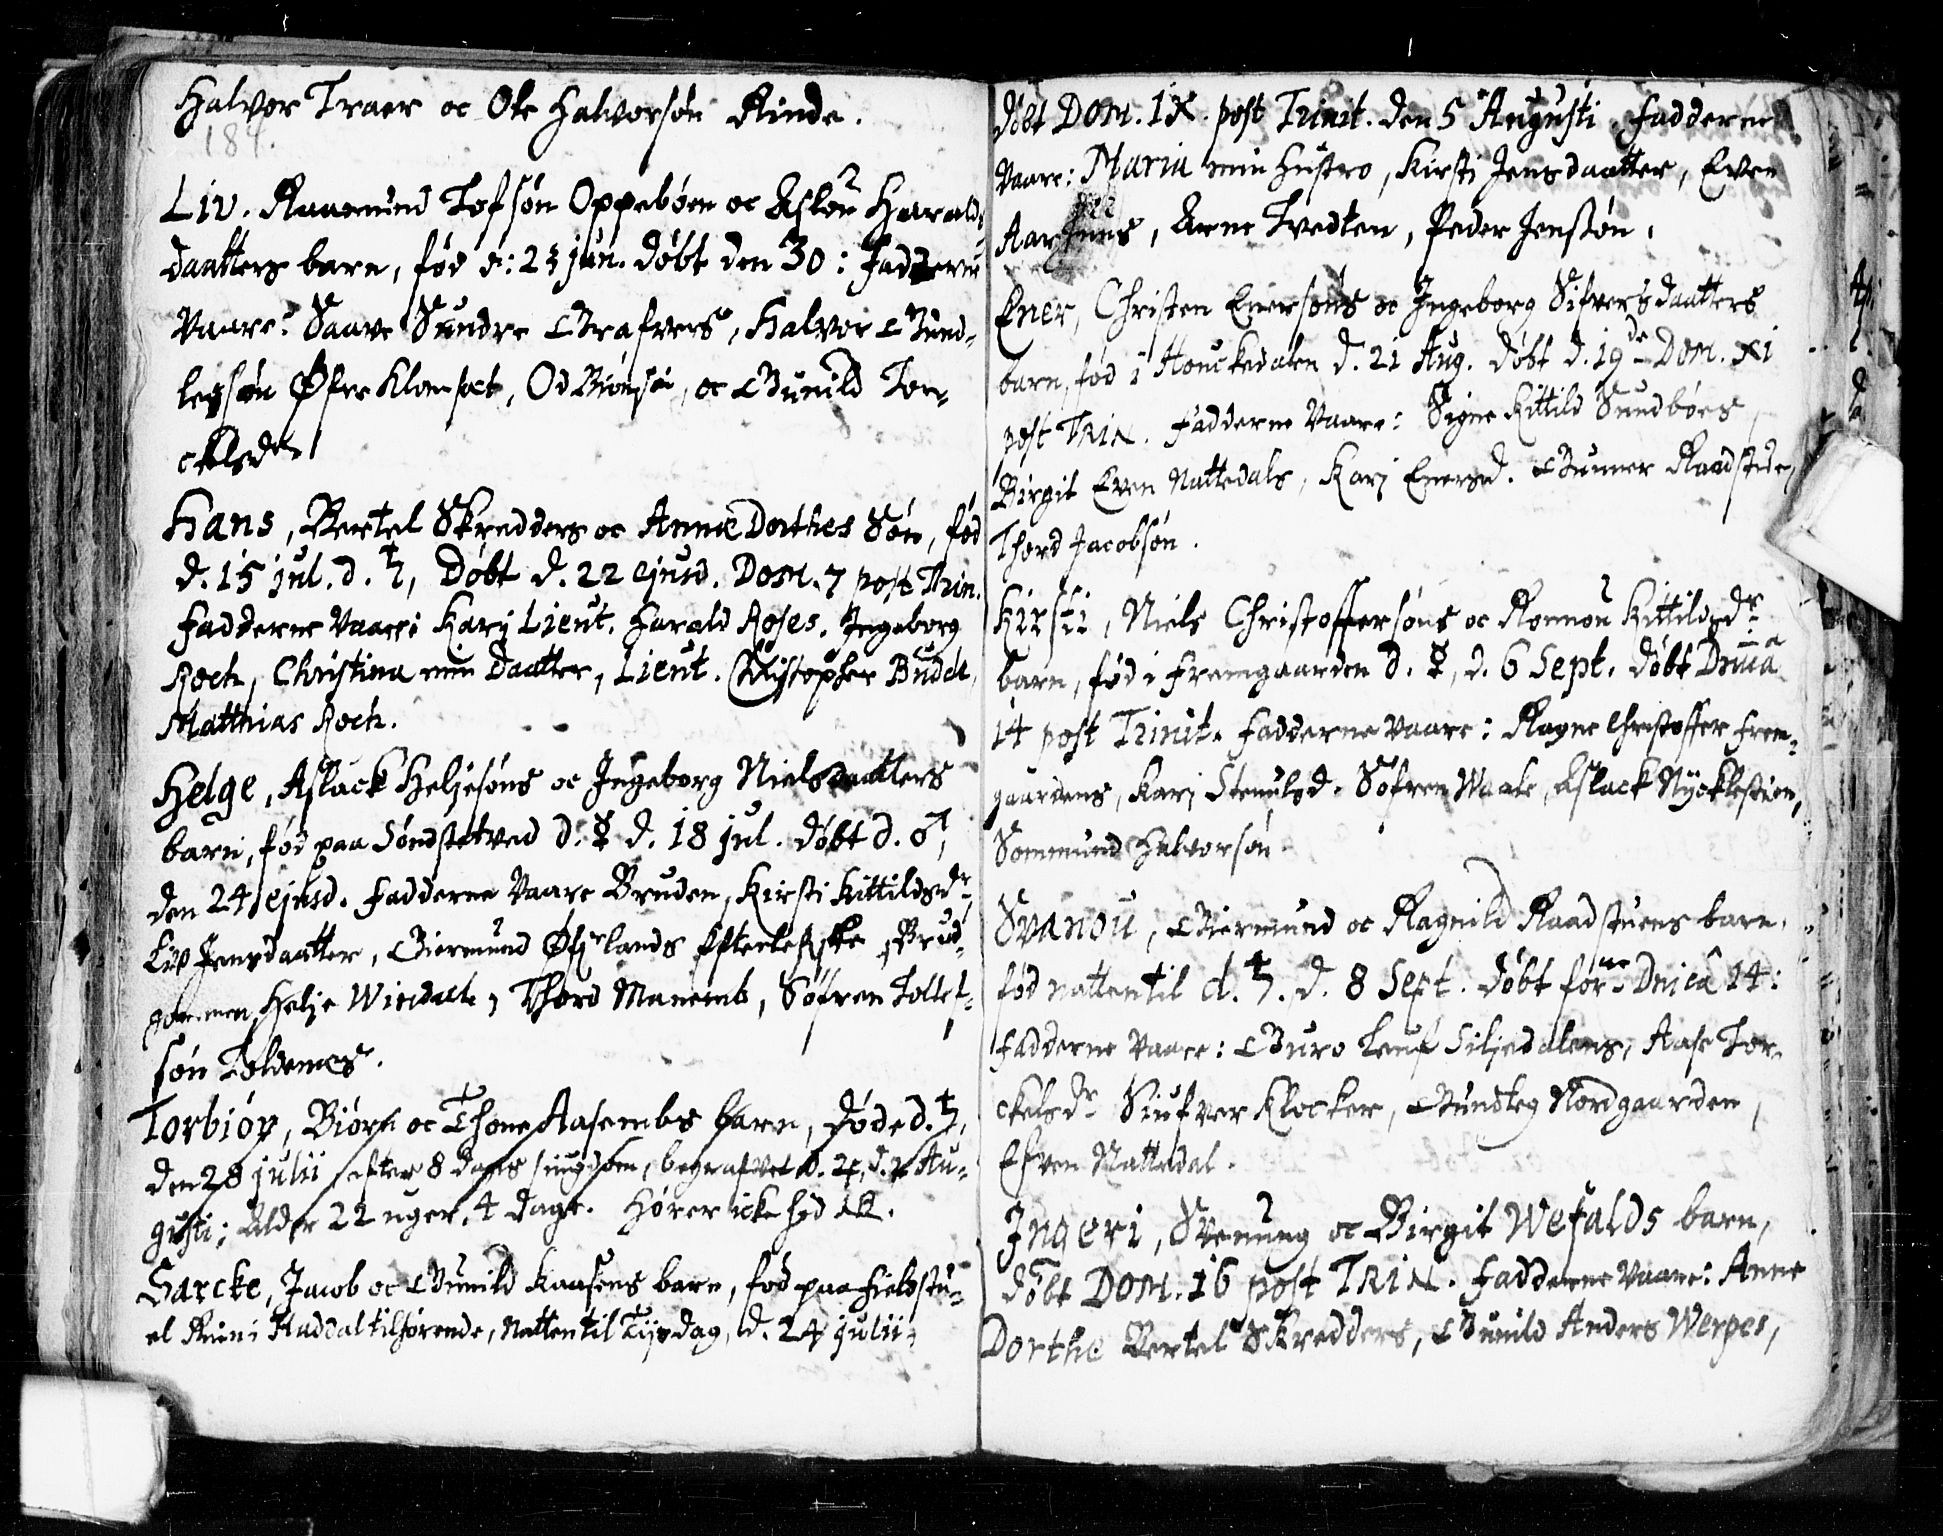 Halvor Traer oc Ole Halvorsøn Rinde.
184.
Liv. Raamund Tofsøn Oppebøen oc Aslou Haralds
daatters barn, fød d: 23 jun. døbt den 30: Fadderne
Vaare: Saave Sundre Grafvers, Halvor Gund-
legsøn Øfre Klomset, Od Biørnsøn, oc Gunild Tor-
ckelsdr
Hans, Bertel Skredders oc Annæ Dorthes Søn, fød
d. 15 jul. d. ♄, Døbt d. 22 ejusd. Dom. 7 post Trin.
Fadderne Vaare: Karj Lieut. Harald Roses, Ingeborg
Koch, Christina min Daatter, Lieut. Christopher Budde,
Matthias Koch.
Helge, Aslack Heljesøns oc Ingeborg Nielsdaatters
barn, fød paa Søndstetved d. ☿ d. 18 jul. døbt d. ♂,
den 24 ejusd. Fadderne Vaare Bruden, Kirsti Kittildsdr,
Liv Jensdaatter, Giermund Efterleffske, Brud-
gommen Helje Windal, Thord Manemb, Søfren Tollef-
søn Toldemes.
Torbiør, Biørn oc Thone Aasembs barn, døde d. ♄,
den 28 julii efter 8 dages siugdom, begrafvet d. ♃, d. 2 Au-
gusti; Alder 22 uger, 4 dage. Hører icke hid
Garcke, Jacob oc Gunild Kaasens barn, fød paa Fieldstu-
el Rui i Huddal tilhørende, Natten til Tijsdag, d. 24 julii,
døbt Dom. IX. post Trinit. den 5 Augusti. Fadderne
Vaare: Maria min Hustro, Kirsti Jensdaatter, Even
Aarnes, Arne Tvedten, Peder Jensøn.
Ener, Christen Enersøns oc Ingeborg Sifversdaatters
barn, fød i Houckedalen d. 21 Aug. døbt d. 19de Dom. XI
post TRIN. Fadderne Vaare: Signe Kittild Sundbøes,
Birgit Even Nattedals, Karj Enersd. Gunner Raadstuen,
Thord Jacobsøn.
Kirsti, Niels Christoffersøns oc Ronnou Kittildsdr
barn, fød i Fremgaarden d. ☿, d. 6 Sept. døbt Dnica
14 post Trinit. Fadderne Vaare: Ragne Christoffer Frem-
gaardens, Karj Stenulsd. Søfren Waale, Aslack Nyckkestuen,
Sommund Halvorsøn.
Svanou, Giermund oc Ragnild Raadstuens barn,
fød natten til d. ♄. d. 8 Sept. døbt førne Dnica 14:
Fadderne Vaare: Guro Leuf Siljedalens, Aase Tor-
ckelsdr Siufver Klocker, Gundleg Nordgaarden,
Efven Nattedal.
Ingeri, Svenung oc Birgit Wefalds barn,
døbt Dom. 16 post TRIN. Fadderne Vaare: Anne
Dorthe Bertel Skredders, Gunild Anders Werpes,